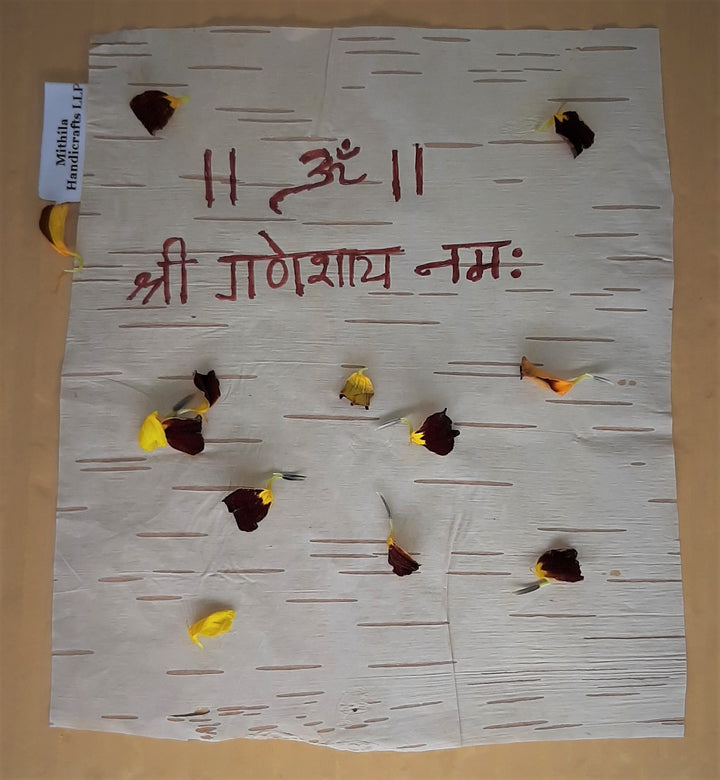 Mithila
Handicrafts LLP
|| ॐ ||
श्री गणेशाय नमः